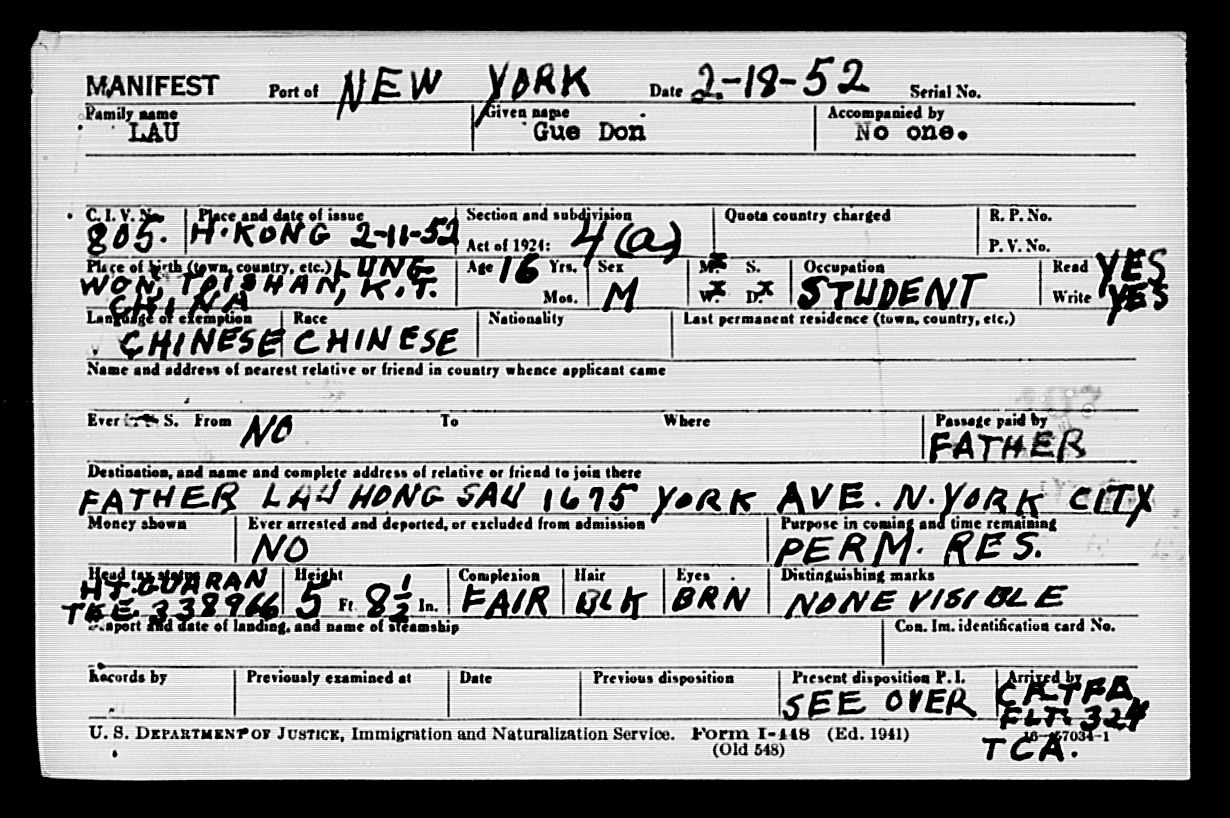 MANIFEST Port of NEW YORK Date 2-18-52 Serial No.
Family name Given name Accompanied by
LAU Gue Don No one.
C. I. V. No. Place and date of issue Section and subdivision Quota country charged R. P. No.
805. H. KONG 2-11-52 Act of 1924: 4(a) P. V. No.
Place of birth (town, country, etc.) LUNG Age 16 Yrs. Sex M. S. Occupation Read YES
WON, TOISHAN, K.T. Mos. M W. D. STUDENT Write YES
CHINA
Language or exemption Race Nationality Last permanent residence (town, country, etc.)
CHINESE CHINESE
Name and address of nearest relative or friend in country whence applicant came
Ever S. From NO To Where Passage paid by
FATHER
Destination, and name and complete address of relative or friend to join there
FATHER LAU HONG SAU 1675 YORK AVE. N. YORK CITY
Money shown Ever arrested and deported, or excluded from admission Purpose in coming and time remaining
NO PERM. RES.
Head tax status Height Complexion Hair Eyes Distinguishing marks
HT. GUARAN
TEE. 338966 5 Ft. 8 1/2 In. FAIR BLK BRN NONE VISIBLE
Seaport and date of landing, and name of steamship Con. Im. identification card No.
Records by Previously examined at Date Previous disposition Present disposition P. I. Arrived by
SEE OVER
FLT. 324
U. S. DEPARTMENT OF JUSTICE, Immigration and Naturalization Service. Form I-448 (Ed. 1941) 16-57034-1
(Old 548) TCA.